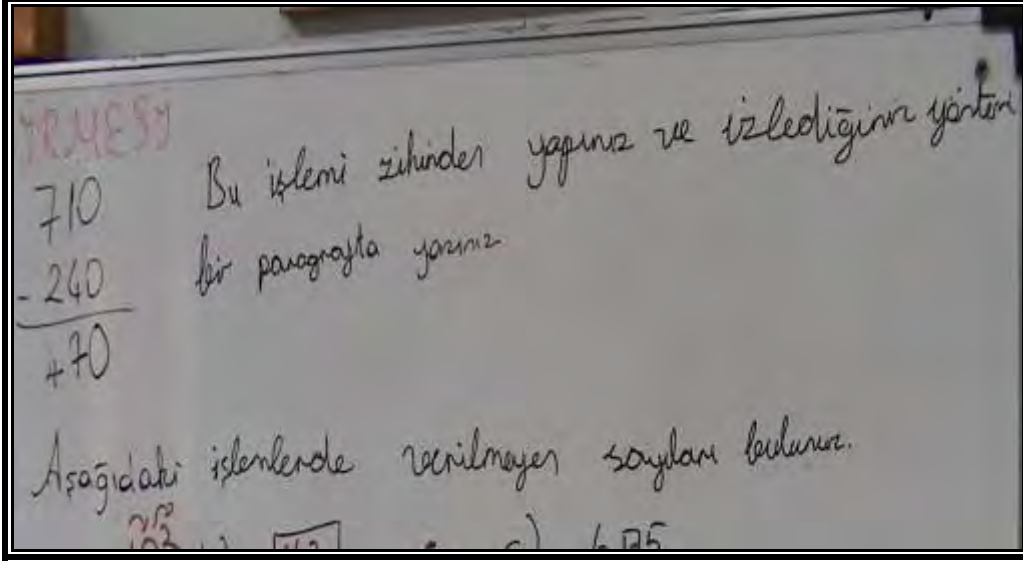 710 Bu işlemi zihinden yapınız ve izlediğiniz yöntemi
- 240 bir paragrafta yazınız
470
Aşağıdaki işlemlerde verilmeyen sayıları bulunuz.
c) 675